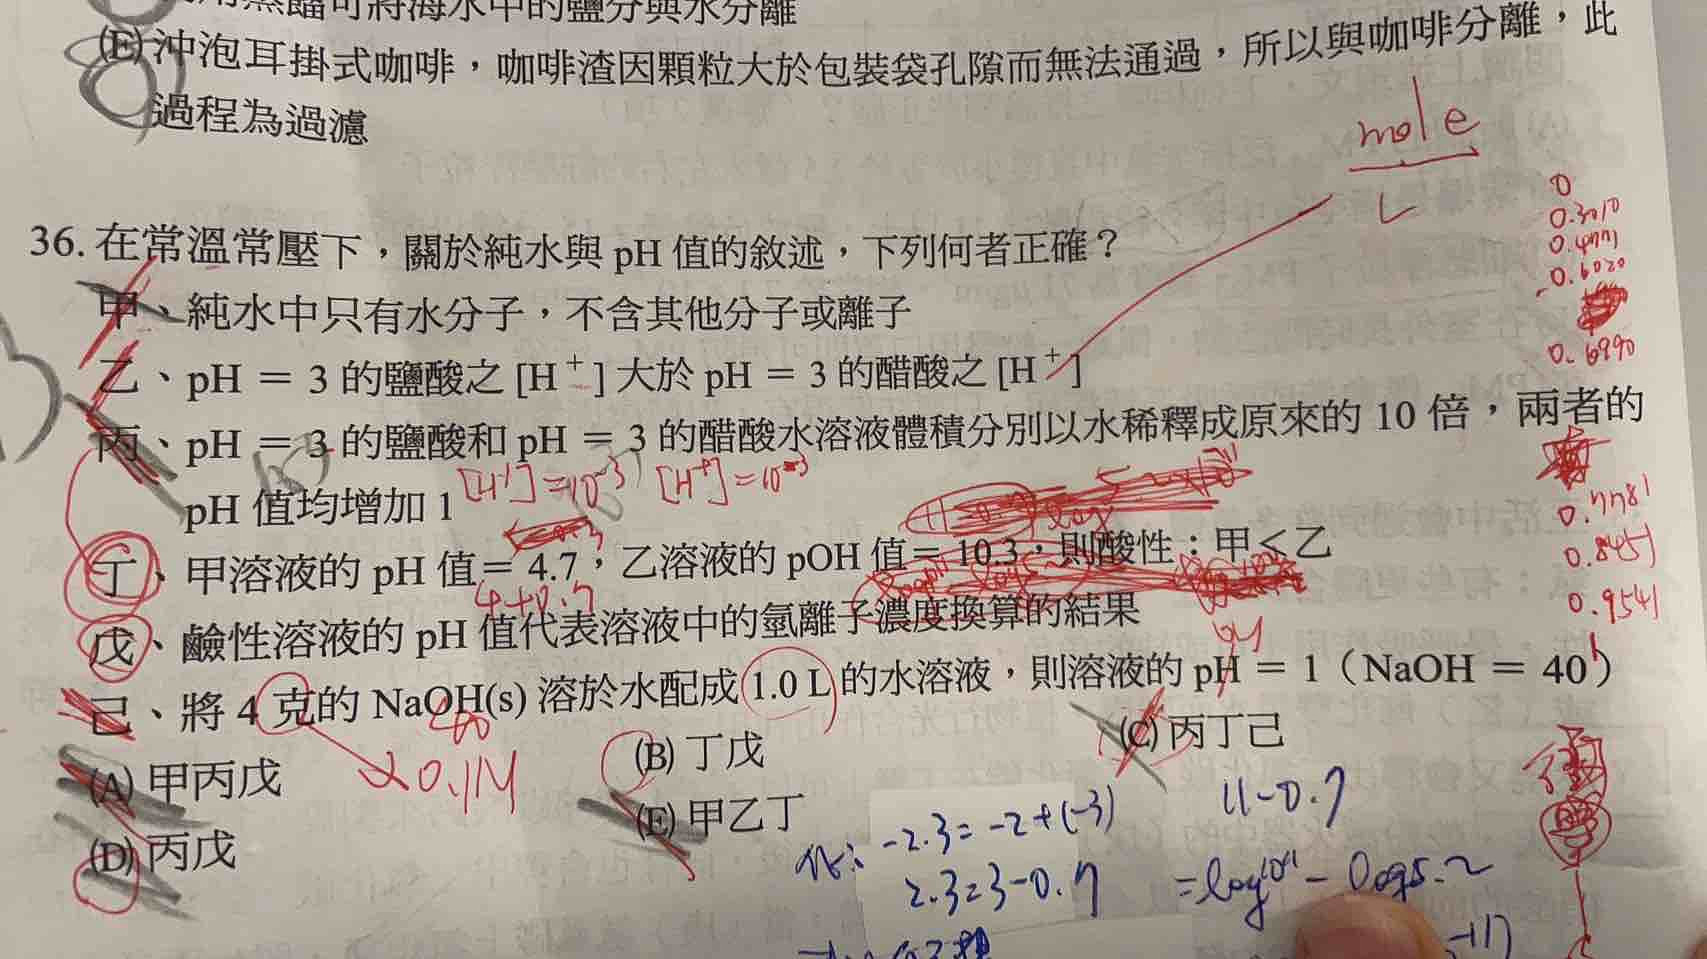 用蒸餾可將海水中的鹽分與水分離
(E)沖泡耳掛式咖啡，咖啡渣因顆粒大於包裝袋孔隙而無法通過，所以與咖啡分離，此
過程為過濾
mole
L
0
0.3010
0.4771
0.6020
0.6990
36. 在常溫常壓下，關於純水與 pH 值的敘述，下列何者正確？
甲、純水中只有水分子，不含其他分子或離子
乙、pH = 3 的鹽酸之 [H⁺] 大於 pH = 3 的醋酸之 [H⁺]
丙、pH = 3 的鹽酸和 pH = 3 的醋酸水溶液體積分別以水稀釋成原來的 10 倍，兩者的
pH 值均增加 1
[H⁺]=10⁻³ [H⁺]=10⁻³
0.7781
0.8451
0.9541
1
丁、甲溶液的 pH 值= 4.7，乙溶液的 pOH 值= 10.3，則酸性：甲<乙
4+0.7
戊、鹼性溶液的 pH 值代表溶液中的氫離子濃度換算的結果
己、將 4 克的 NaOH(s) 溶於水配成 1.0 L 的水溶液，則溶液的 pH = 1（NaOH = 40）
40
0.1M
(A) 甲丙戊
(B) 丁戊
(C) 丙丁己
(D) 丙戊
(E) 甲乙丁
-2.3=-2+(-3)
2.3=3-0.7
11-0.7